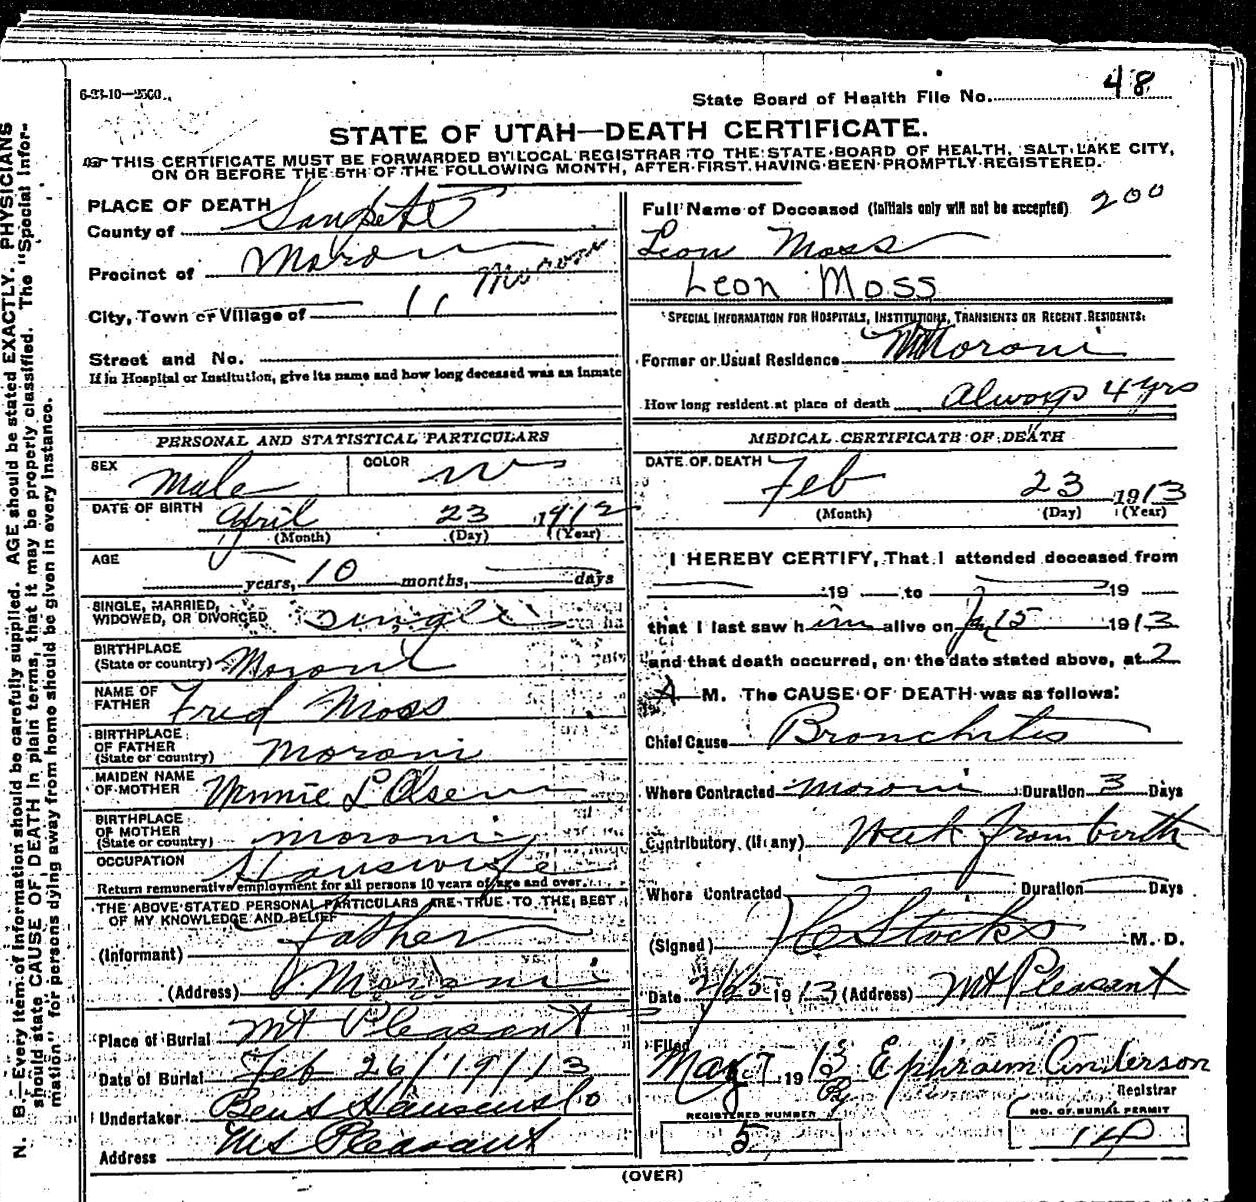 6-23-10-2500.
State Board of Health File No. 48
STATE OF UTAH—DEATH CERTIFICATE.
THIS CERTIFICATE MUST BE FORWARDED BY LOCAL REGISTRAR TO THE STATE BOARD OF HEALTH, SALT LAKE CITY,
ON OR BEFORE THE 5TH OF THE FOLLOWING MONTH, AFTER FIRST HAVING BEEN PROMPTLY REGISTERED.
PLACE OF DEATH
County of Sanpete
Precinct of Moroni
Moroni
City, Town or Village of " "
Street and No.
If in Hospital or Institution, give its name and how long deceased was an inmate
PERSONAL AND STATISTICAL PARTICULARS
SEX Male COLOR W
DATE OF BIRTH April 23 1912
(Month) (Day) (Year)
AGE
years, 10 months, days
SINGLE, MARRIED,
WIDOWED, OR DIVORCED single
BIRTHPLACE
(State or country) Moroni
NAME OF
FATHER Fred Moss
BIRTHPLACE
OF FATHER
(State or country) Moroni
MAIDEN NAME
OF MOTHER Winnie L Olsen
BIRTHPLACE
OF MOTHER
(State or country) moroni
OCCUPATION Hauswife
Return remunerative employment for all persons 10 years of age and over.
THE ABOVE STATED PERSONAL PARTICULARS ARE TRUE TO THE BEST
OF MY KNOWLEDGE AND BELIEF
(Informant) father
(Address) Moroni
Place of Burial Mt Pleasant
Date of Burial Feb 26/1913
Undertaker Bent Hausen
Address Mt Pleasant
Full Name of Deceased (Initials only will not be accepted) 200
Leon Moss
Leon Moss
SPECIAL INFORMATION FOR HOSPITALS, INSTITUTIONS, TRANSIENTS OR RECENT RESIDENTS:
Former or Usual Residence Moroni
How long resident at place of death Always 4 yrs
MEDICAL CERTIFICATE OF DEATH
DATE OF DEATH Feb 23 1913
(Month) (Day) (Year)
I HEREBY CERTIFY, That I attended deceased from
19 to 19
that I last saw him alive on 15 1913
and that death occurred, on the date stated above, at 2
A M. The CAUSE OF DEATH was as follows:
Chief Cause Bronchites
Where Contracted Moroni Duration 3 Days
Contributory (if any) Weak from birth
Where Contracted Duration Days
(Signed) Stocks M. D.
Date 2/25 1913 (Address) Mt Pleasant
Filed
May 7 1913 Ephraim Anderson
Registrar
REGISTERED NUMBER
5
NO. OF BURIAL PERMIT
14
(OVER)
N. B.—Every item of information should be carefully supplied. AGE should be stated EXACTLY. PHYSICIANS
should state CAUSE OF DEATH in plain terms, that it may be properly classified. The "Special Infor-
mation" for persons dying away from home should be given in every instance.